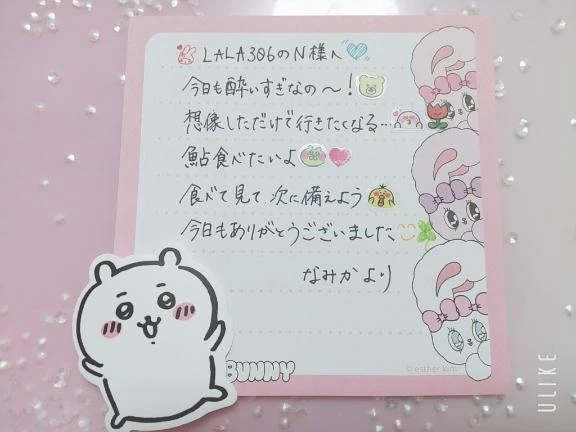 LALA306のN様へ
今日も酔いすぎなの〜!
想像しただけで行きたくなる…
鮎食べたいよ
食べて見て、次に備えよう
今日もありがとうございました
なみかより
BUNNY
© esther kim
ULIKE